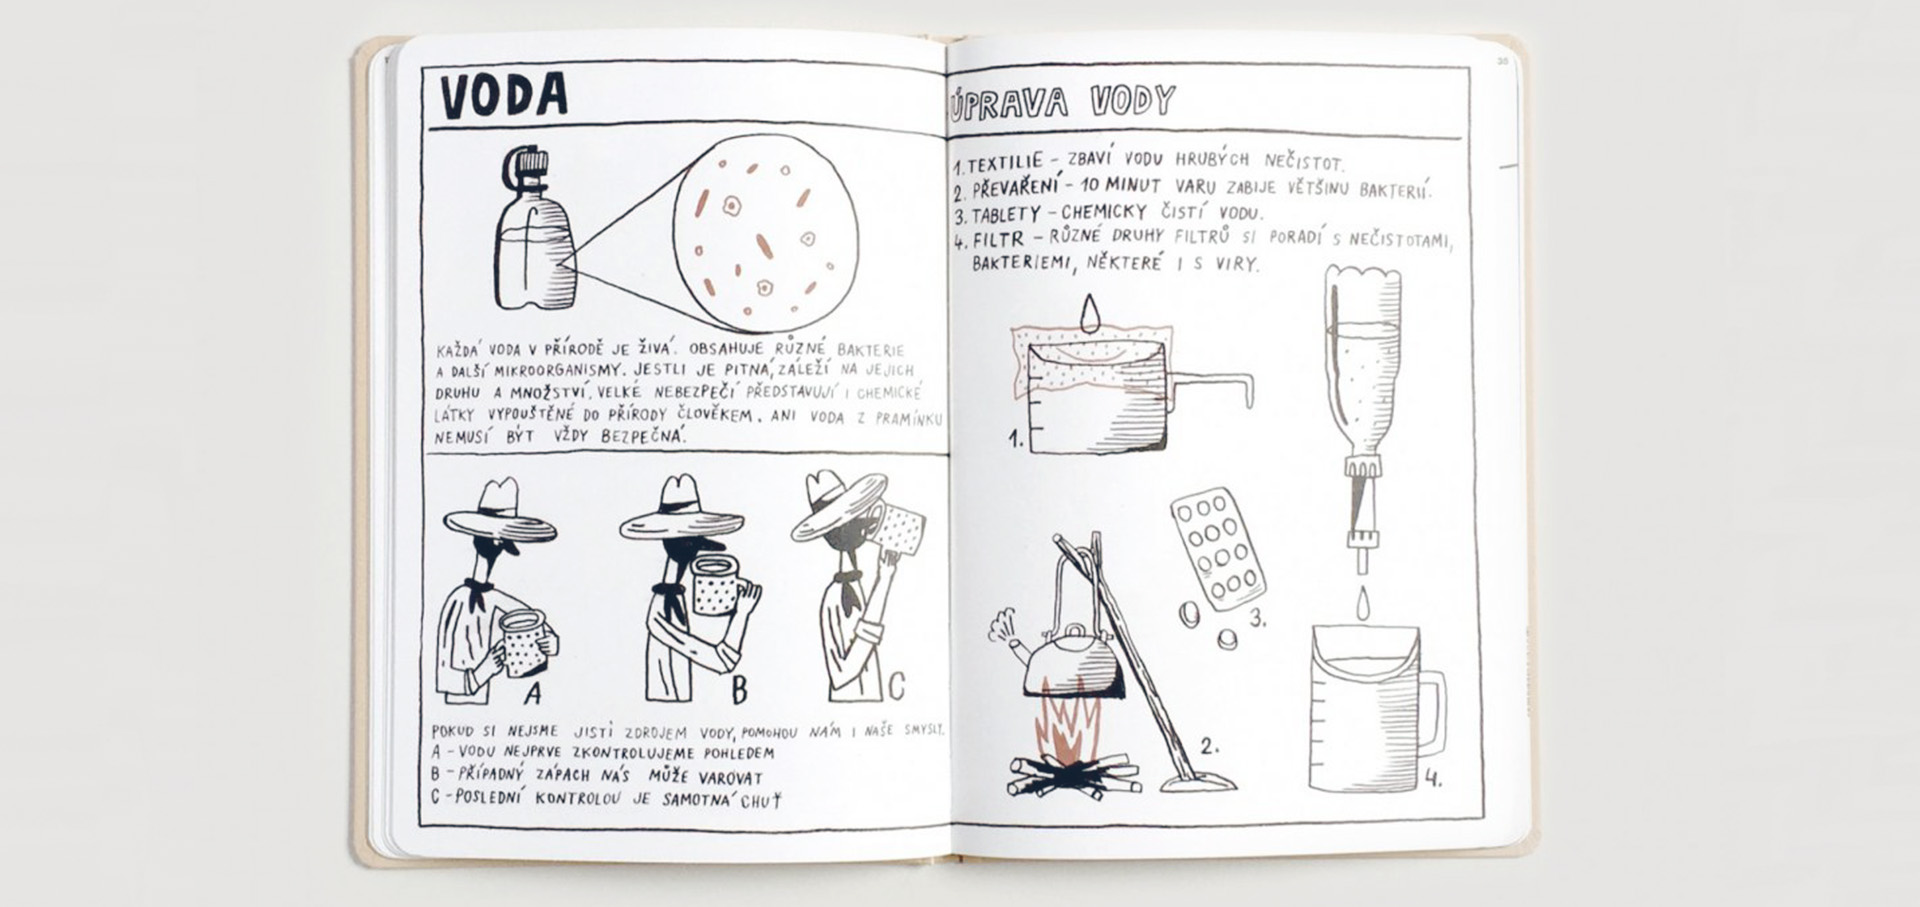 VODA
KAŽDÁ VODA V PŘÍRODĚ JE ŽIVÁ. OBSAHUJE RŮZNÉ BAKTERIE
A DALŠÍ MIKROORGANISMY. JESTLI JE PITNÁ, ZÁLEŽÍ NA JEJICH
DRUHU A MNOŽSTVÍ, VELKÉ NEBEZPEČÍ PŘEDSTAVUJÍ I CHEMICKÉ
LÁTKY VYPOUŠTĚNÉ DO PŘÍRODY ČLOVĚKEM. ANI VODA Z PRAMÍNKU
NEMUSÍ BÝT VŽDY BEZPEČNÁ.
A
B
C
POKUD SI NEJSME JISTÍ ZDROJEM VODY, POMOHOU NÁM I NAŠE SMYSLY.
A - VODU NEJPRVE ZKONTROLUJEME POHLEDEM
B - PŘÍPADNÝ ZÁPACH NÁS MŮŽE VAROVAT
C - POSLEDNÍ KONTROLOU JE SAMOTNÁ CHUŤ
35
ÚPRAVA VODY
1. TEXTILIE - ZBAVÍ VODU HRUBÝCH NEČISTOT.
2. PŘEVAŘENÍ - 10 MINUT VARU ZABIJE VĚTŠINU BAKTERIÍ.
3. TABLETY - CHEMICKY ČISTÍ VODU.
4. FILTR - RŮZNÉ DRUHY FILTRŮ SI PORADÍ S NEČISTOTAMI,
BAKTERIEMI, NĚKTERÉ I S VIRY.
1.
3.
2.
4.